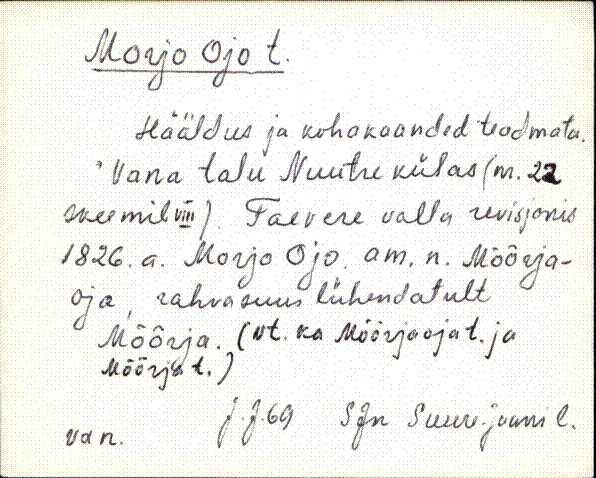 Morjo Ojo t.
Hääldus ja kohakaanded teadmata.
Vana talu Nuutre külas (m. 22
skeemil VIII). Taevere valla revisjonis
1826. a. Morjo Ojo. am. n. Möörja-
oja, rahvasuus lühendatult
Möörja. (vt. ka Möörjaoja t. ja
Möörja t.)
J.J.69 SJn Suure-Jaani l.
van.